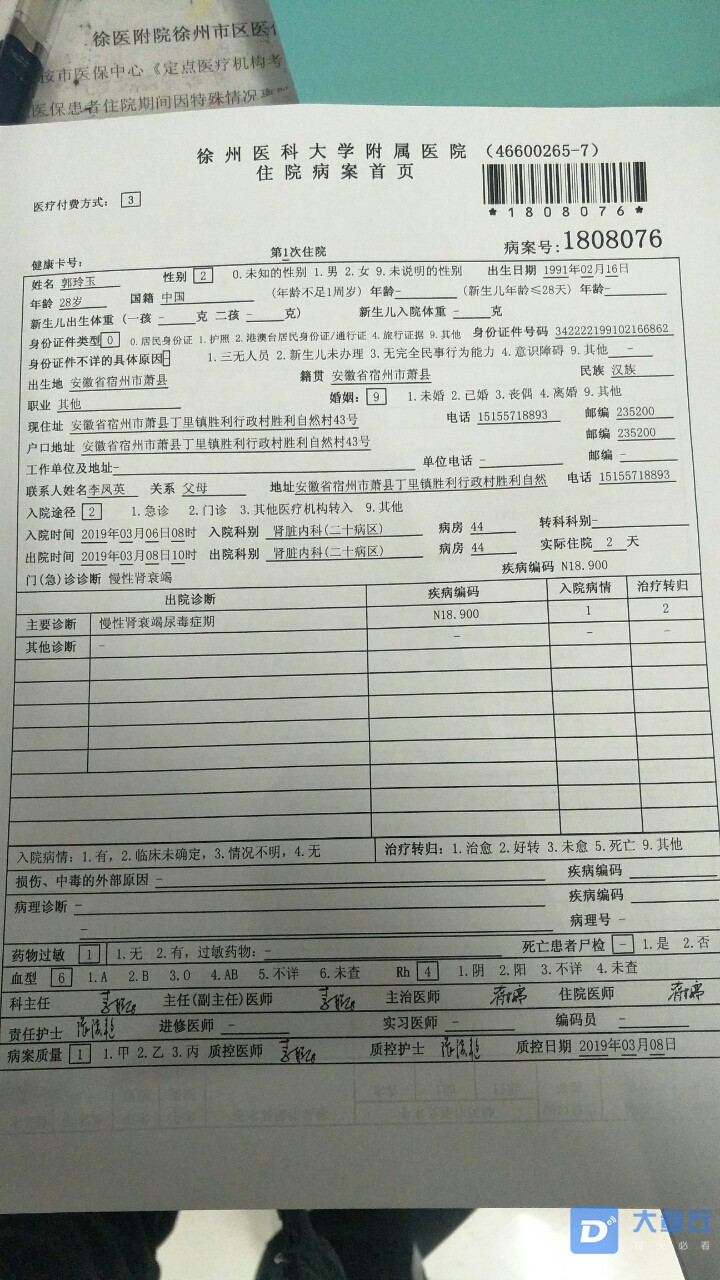 徐医附院徐州市区医
按市医保中心《定点医疗机构考
医保患者住院期间因特殊情况
徐州医科大学附属医院 (46600265-7)
住院病案首页
*1808076*
医疗付费方式: 3
健康卡号: 第1次住院 病案号:1808076
姓名 郭玲玉 性别 2 0.未知的性别 1.男 2.女 9.未说明的性别 出生日期 1991年02月16日
年龄 28岁 国籍 中国 (年龄不足1周岁) 年龄- (新生儿年龄≤28天) 年龄-
新生儿出生体重 (一孩 - 克 二孩 - 克) 新生儿入院体重 - 克
身份证件类型 0 0.居民身份证 1.护照 2.港澳台居民身份证/通行证 4.旅行证据 9.其他 身份证件号码 342222199102166862
身份证件不详的具体原因- 1.三无人员 2.新生儿未办理 3.无完全民事行为能力 4.意识障碍 9.其他 -
出生地 安徽省宿州市萧县 籍贯 安徽省宿州市萧县 民族 汉族
职业 其他 婚姻: 9 1.未婚 2.已婚 3.丧偶 4.离婚 9.其他
现住址 安徽省宿州市萧县丁里镇胜利行政村胜利自然村43号 电话 15155718893 邮编 235200
户口地址 安徽省宿州市萧县丁里镇胜利行政村胜利自然村43号 邮编 235200
工作单位及地址- 单位电话 - 邮编 -
联系人姓名李凤英 关系 父母 地址安徽省宿州市萧县丁里镇胜利行政村胜利自然 电话 15155718893
入院途径 2 1.急诊 2.门诊 3.其他医疗机构转入 9.其他
入院时间 2019年03月06日08时 入院科别 肾脏内科(二十病区) 病房 44 转科科别-
出院时间 2019年03月08日10时 出院科别 肾脏内科(二十病区) 病房 44 实际住院 2 天
门(急)诊诊断 慢性肾衰竭 疾病编码 N18.900
出院诊断 疾病编码 入院病情 治疗转归
主要诊断 慢性肾衰竭尿毒症期 N18.900 1 2
其他诊断 - - - -
入院病情: 1.有, 2.临床未确定, 3.情况不明, 4.无 治疗转归: 1.治愈 2.好转 3.未愈 5.死亡 9.其他
损伤、中毒的外部原因 - 疾病编码
病理诊断 - 疾病编码
- 病理号 -
药物过敏 1 1.无 2.有, 过敏药物: - 死亡患者尸检 - 1.是 2.否
血型 6 1.A 2.B 3.O 4.AB 5.不详 6.未查 Rh 4 1.阴 2.阳 3.不详 4.未查
科主任 主任(副主任)医师 主治医师 住院医师
责任护士 进修医师 - 实习医师 - 编码员 -
病案质量 1 1.甲 2.乙 3.丙 质控医师 质控护士 质控日期 2019年03月08日